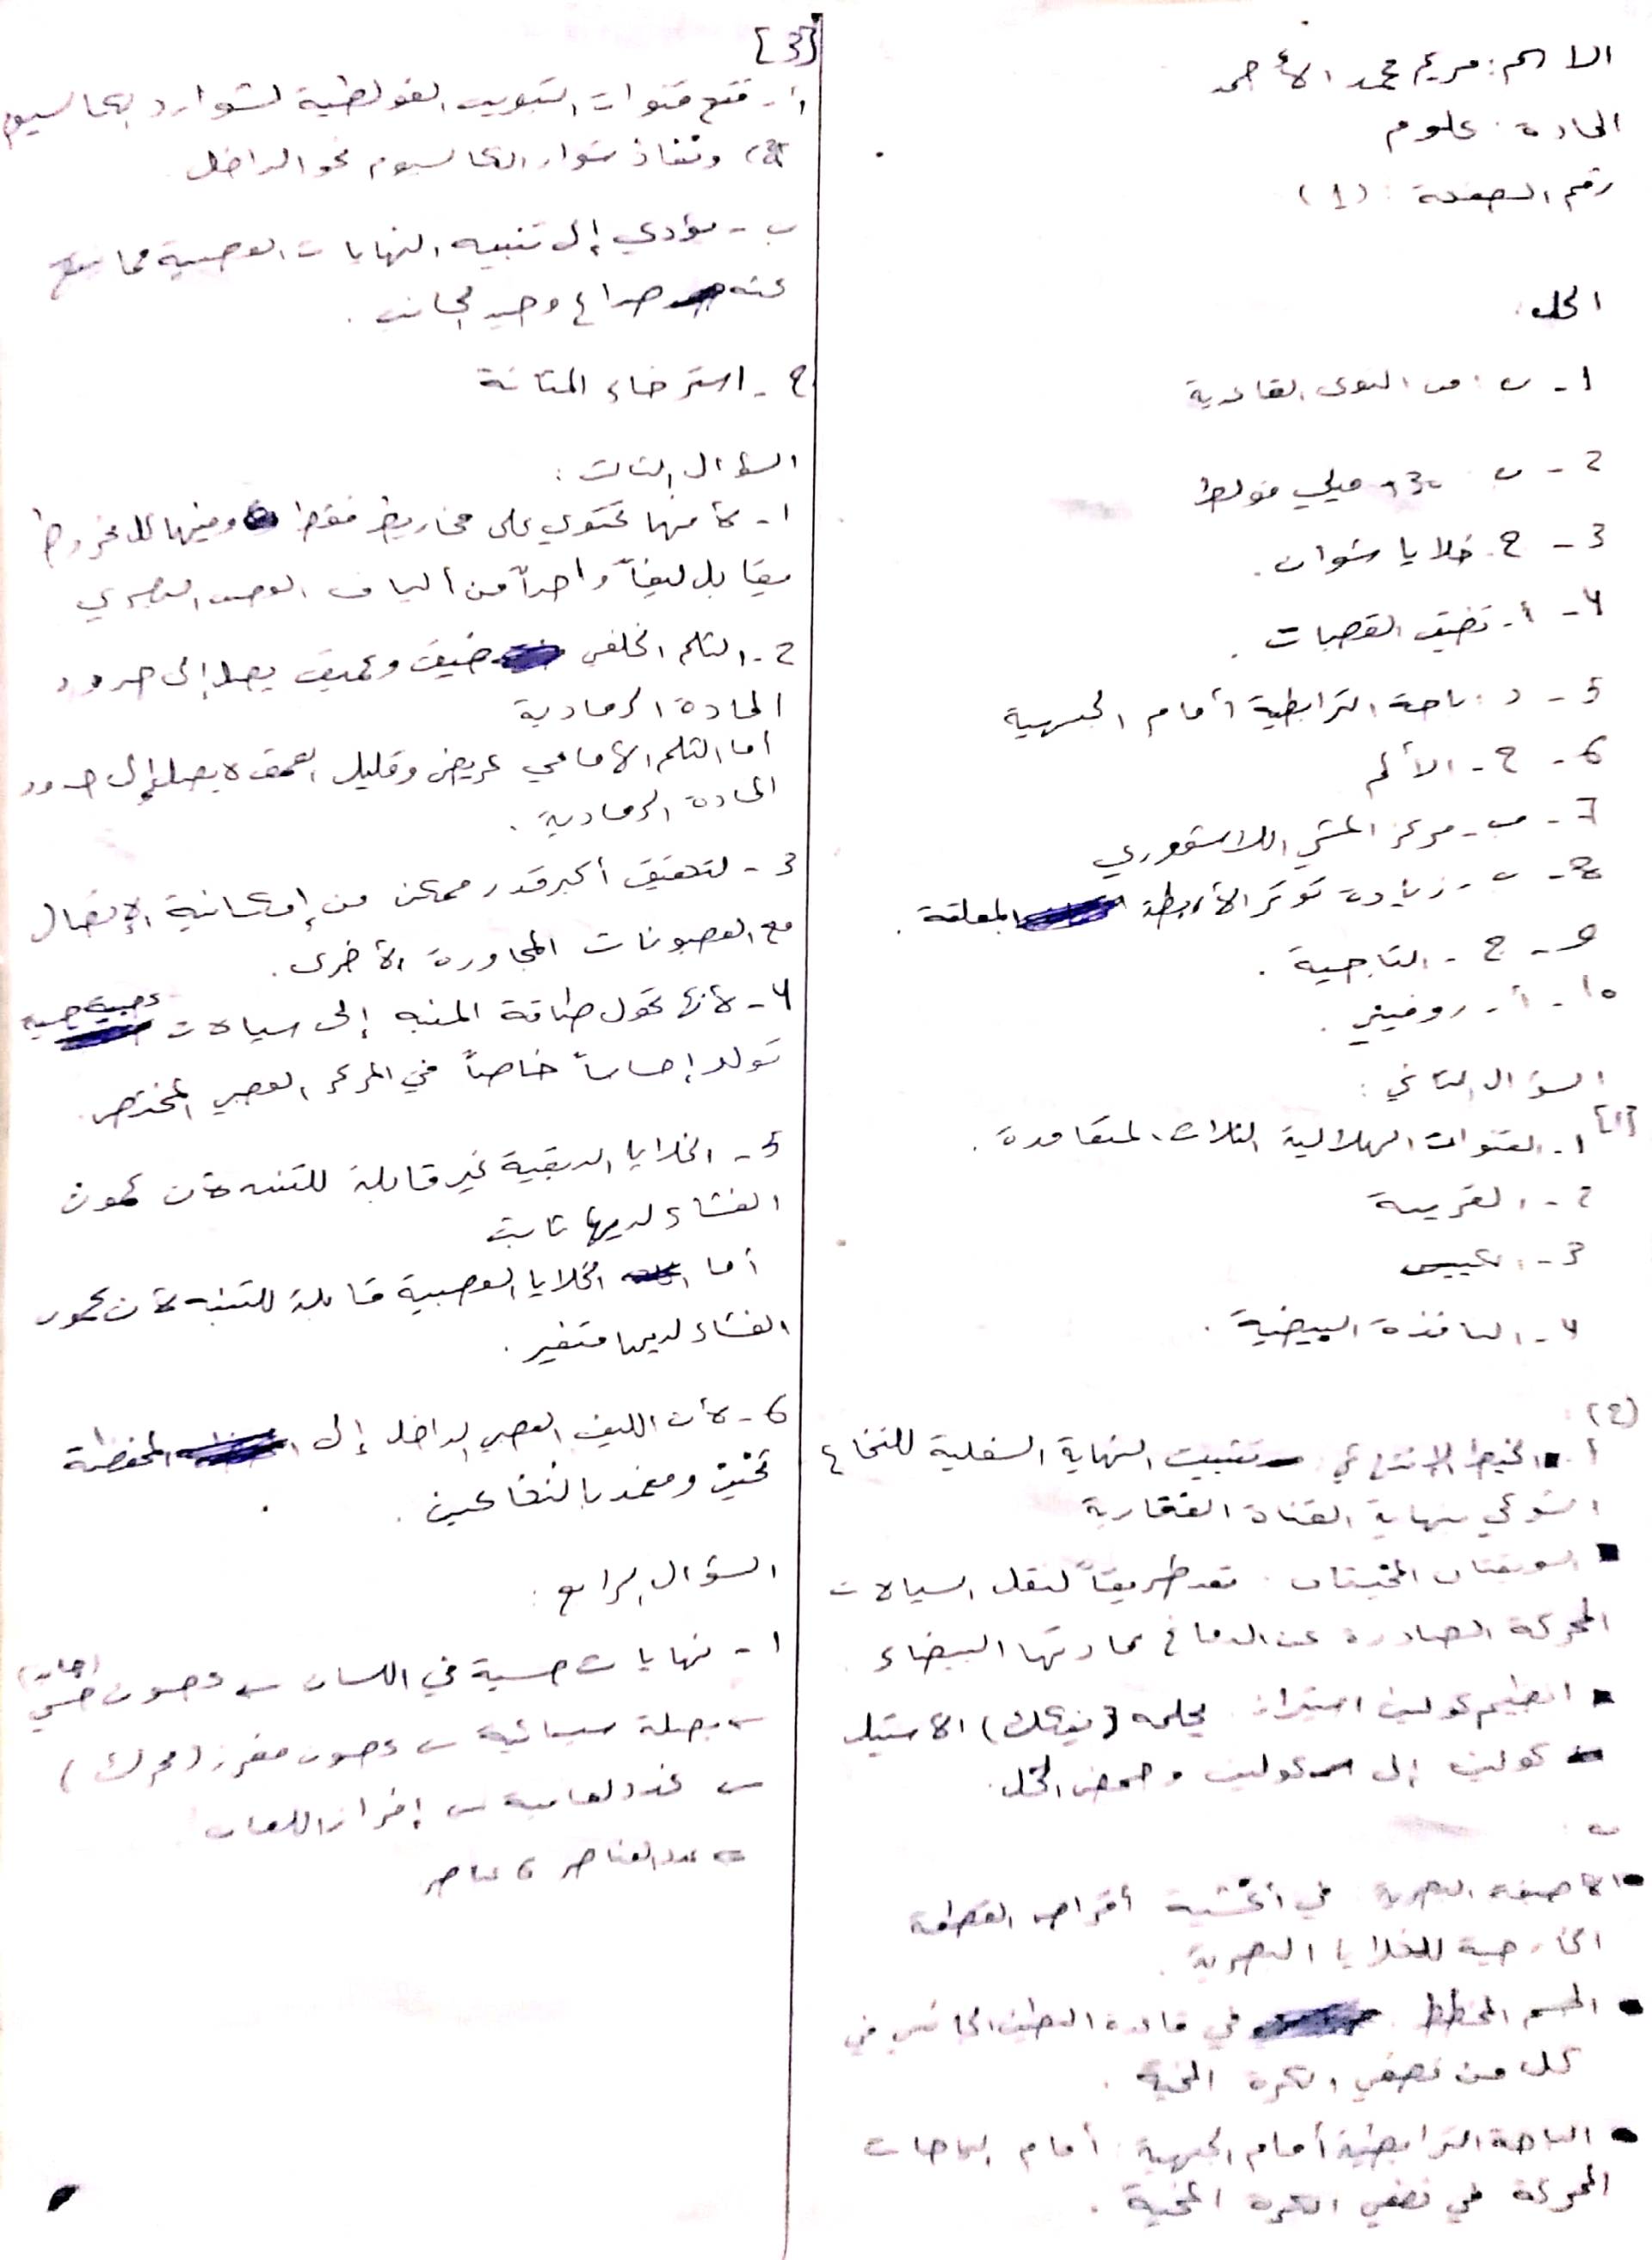 الاسم: مريم محمد الأحمد
المادة: علوم
رقم الصفحة: (1)
الحل:
1- ب: من النوى القاعدية
2- ب 30 ميلي فولط
3- ج. خلايا شوان.
4- أ- تضيق القصبات.
5- د: باحة الترابطية أمام الجبهية
6- ج- الألم
7- ب- مركز المشي اللاشعوري
8- ب- زيادة توتر الأربطة المعلقة.
9- ج- التاجية.
10- أ- روفيني.
السؤال الثاني:
[1] 1- القنوات الهلالية الثلاث المتعامدة.
2- القريبة
3- الكييس
4- النافذة البيضية.
(2)
أ. الخيط الانتهائي: تثبيت النهاية السفلية للنخاع
الشوكي بنهاية القناة الفقارية
السويقتان المخيتان: تعد طريقاً لنقل السيالات
المحركة الصادرة عن الدماغ بمادتها البيضاء.
أنظيم كولين استيراز: يحلمه (يفكك) الأستيل
كولين إلى كولين وحمض الخل.
ب:
الأصبغة البصرية: في أغشية أقراص القطعة
الخارجية للخلايا البصرية.
الجسم المخطط: في قاعدة البطين الجانبي في
كل من نصفي الكرة المخية.
الباحة الترابطية أمام الجبهية: أمام الباحات
المحركة في نصفي الكرة المخية.
[3]
أ- فتح قنوات التبويب الفولطية لشوارد الكالسيوم
ونفاذ شوارد الكالسيوم نحو الداخل.
ب- يؤدي إلى تنبيه النهايات العصبية مما ينتج
عنه صداع وحيد الجانب.
ج- استرخاء المثانة
السؤال الثالث:
1- لأنها تحتوي على مخاريط فقط وفيها كل مخروط
يقابل ليفاً واحداً من ألياف العصب البصري
2- الثلم الخلفي ضيق وعميق يصل إلى حدود
المادة الرمادية
أما الثلم الأمامي عريض وقليل العمق لا يصل إلى حدود
المادة الرمادية.
3- لتحقيق أكبر قدر ممكن من إمكانية الإتصال
مع العصبونات المجاورة الأخرى.
4- لأنها تحول طاقة المنبه إلى سيالات عصبية حسية
تولد إحساساً خاصاً في المركز العصبي المختص.
5- الخلايا الدبقية غير قابلة للتنبه لأن كمون
الغشاء لديها ثابت
أما الخلايا العصبية قابلة للتنبه لأن كمون
الغشاء لديها متغير.
6- لأن الليف العصبي الداخل إلى المحفظة
ثخين ومغمد بالنخاعين.
السؤال الرابع:
1- نهايات حسية في اللسان ← عصبون حسي (جابذ)
← بصلة سيسائية ← عصبون مفرز (محرك)
← غدد لعابية ← إفراز اللعاب
← عدد العناصر 6 عناصر